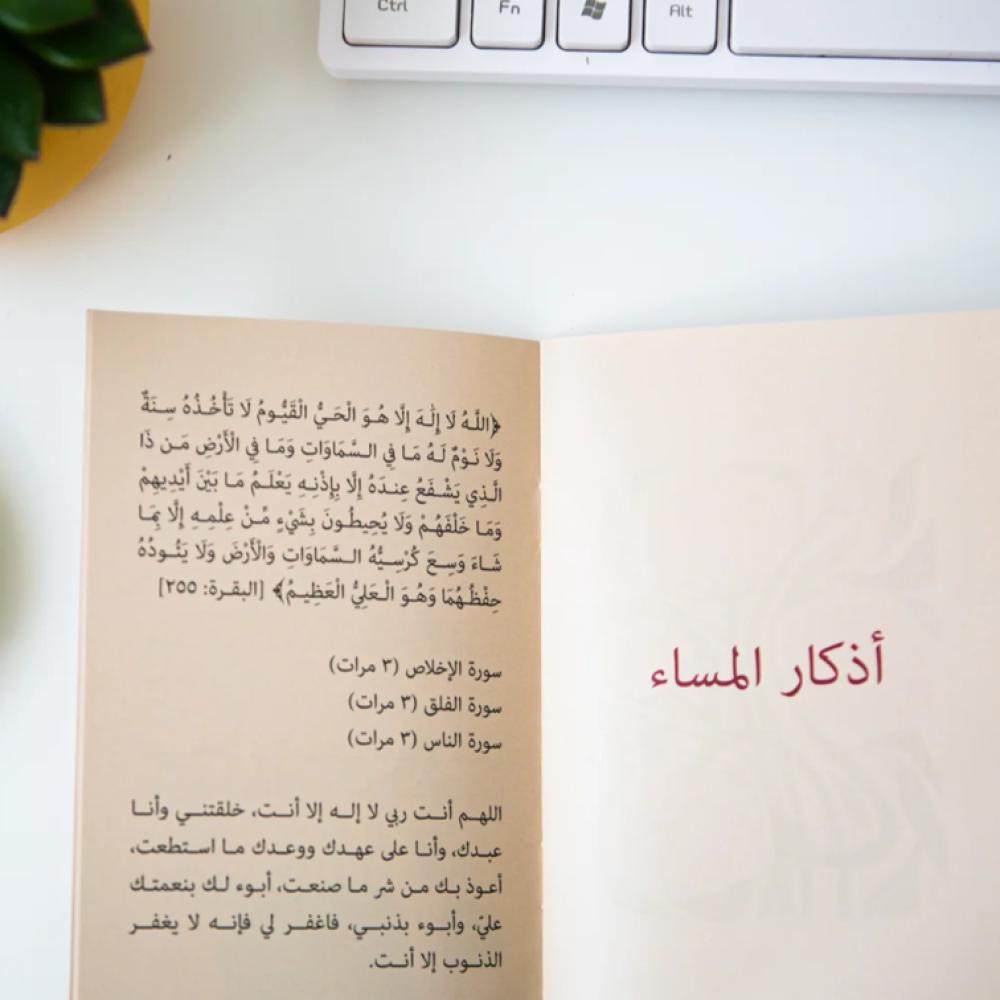 Ctrl
Fn
Alt
أذكار المساء
﴿اللَّهُ لَا إِلَٰهَ إِلَّا هُوَ الْحَيُّ الْقَيُّومُ لَا تَأْخُذُهُ سِنَةٌ
وَلَا نَوْمٌ لَهُ مَا فِي السَّمَاوَاتِ وَمَا فِي الْأَرْضِ مَن ذَا
الَّذِي يَشْفَعُ عِندَهُ إِلَّا بِإِذْنِهِ يَعْلَمُ مَا بَيْنَ أَيْدِيهِمْ
وَمَا خَلْفَهُمْ وَلَا يُحِيطُونَ بِشَيْءٍ مِّنْ عِلْمِهِ إِلَّا بِمَا
شَاءَ وَسِعَ كُرْسِيُّهُ السَّمَاوَاتِ وَالْأَرْضَ وَلَا يَئُودُهُ
حِفْظُهُمَا وَهُوَ الْعَلِيُّ الْعَظِيمُ﴾ [البقرة: ٢٥٥]
سورة الإخلاص (٣ مرات)
سورة الفلق (٣ مرات)
سورة الناس (٣ مرات)
اللهم أنت ربي لا إله إلا أنت، خلقتني وأنا
عبدك، وأنا على عهدك ووعدك ما استطعت،
أعوذ بك من شر ما صنعت، أبوء لك بنعمتك
عليّ، وأبوء بذنبي، فاغفر لي فإنه لا يغفر
الذنوب إلا أنت.